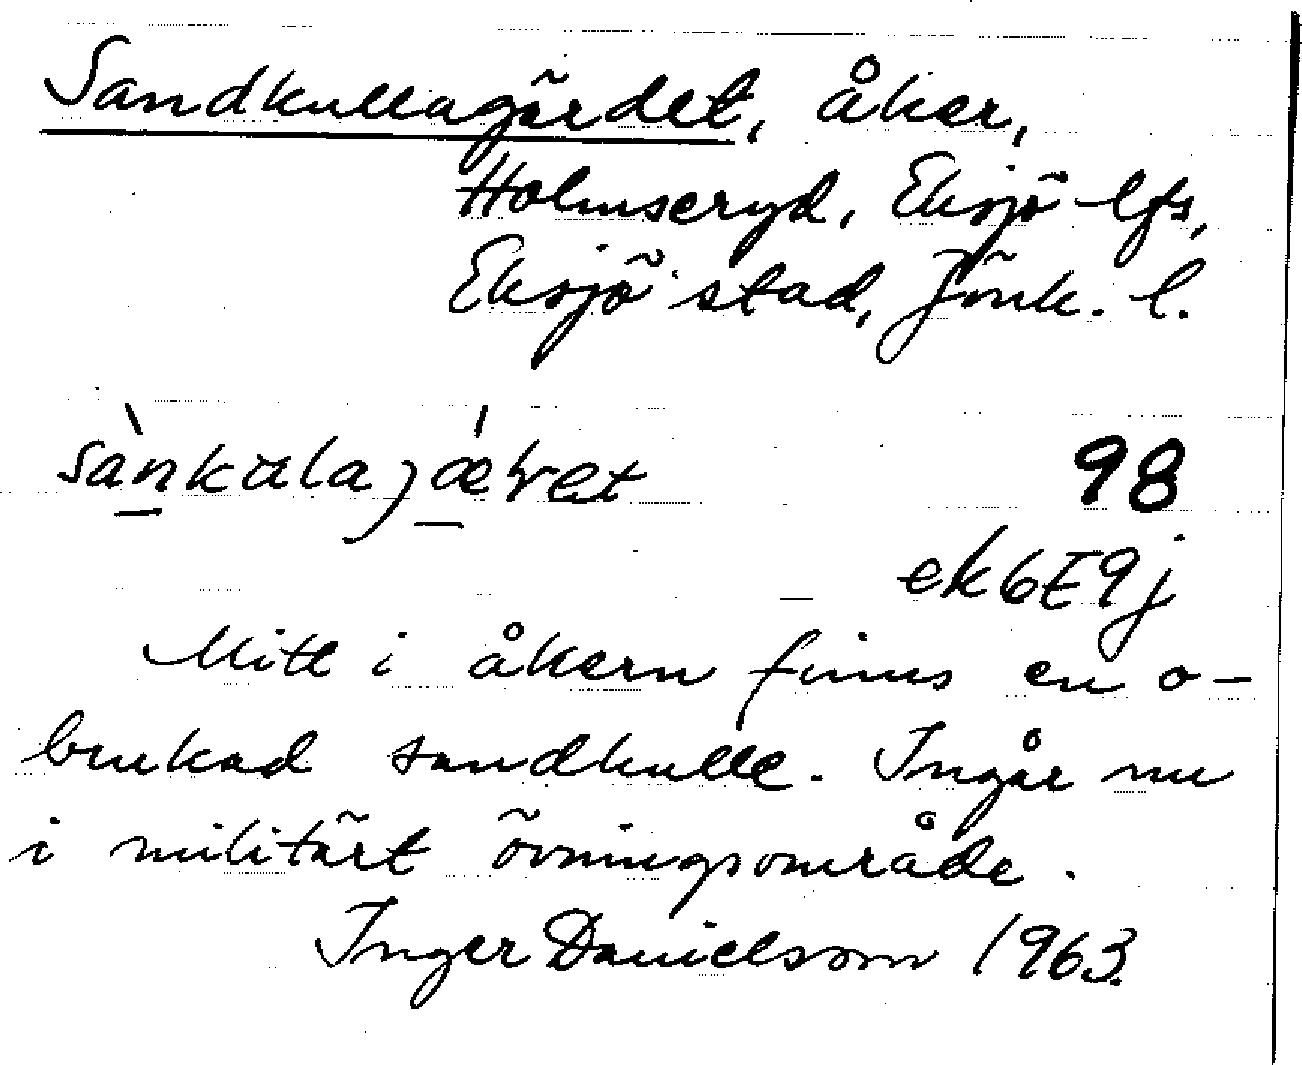 Sandkullagärdet, åker,
Holmseryd, Eksjö lfs,
Eksjö stad, Jönk. l.
98
ek6E9j
Mitt i åkern finns en o-
brukad sandkulle. Ingår nu
i militärt övningsområde.
Inger Danielsson 1963.